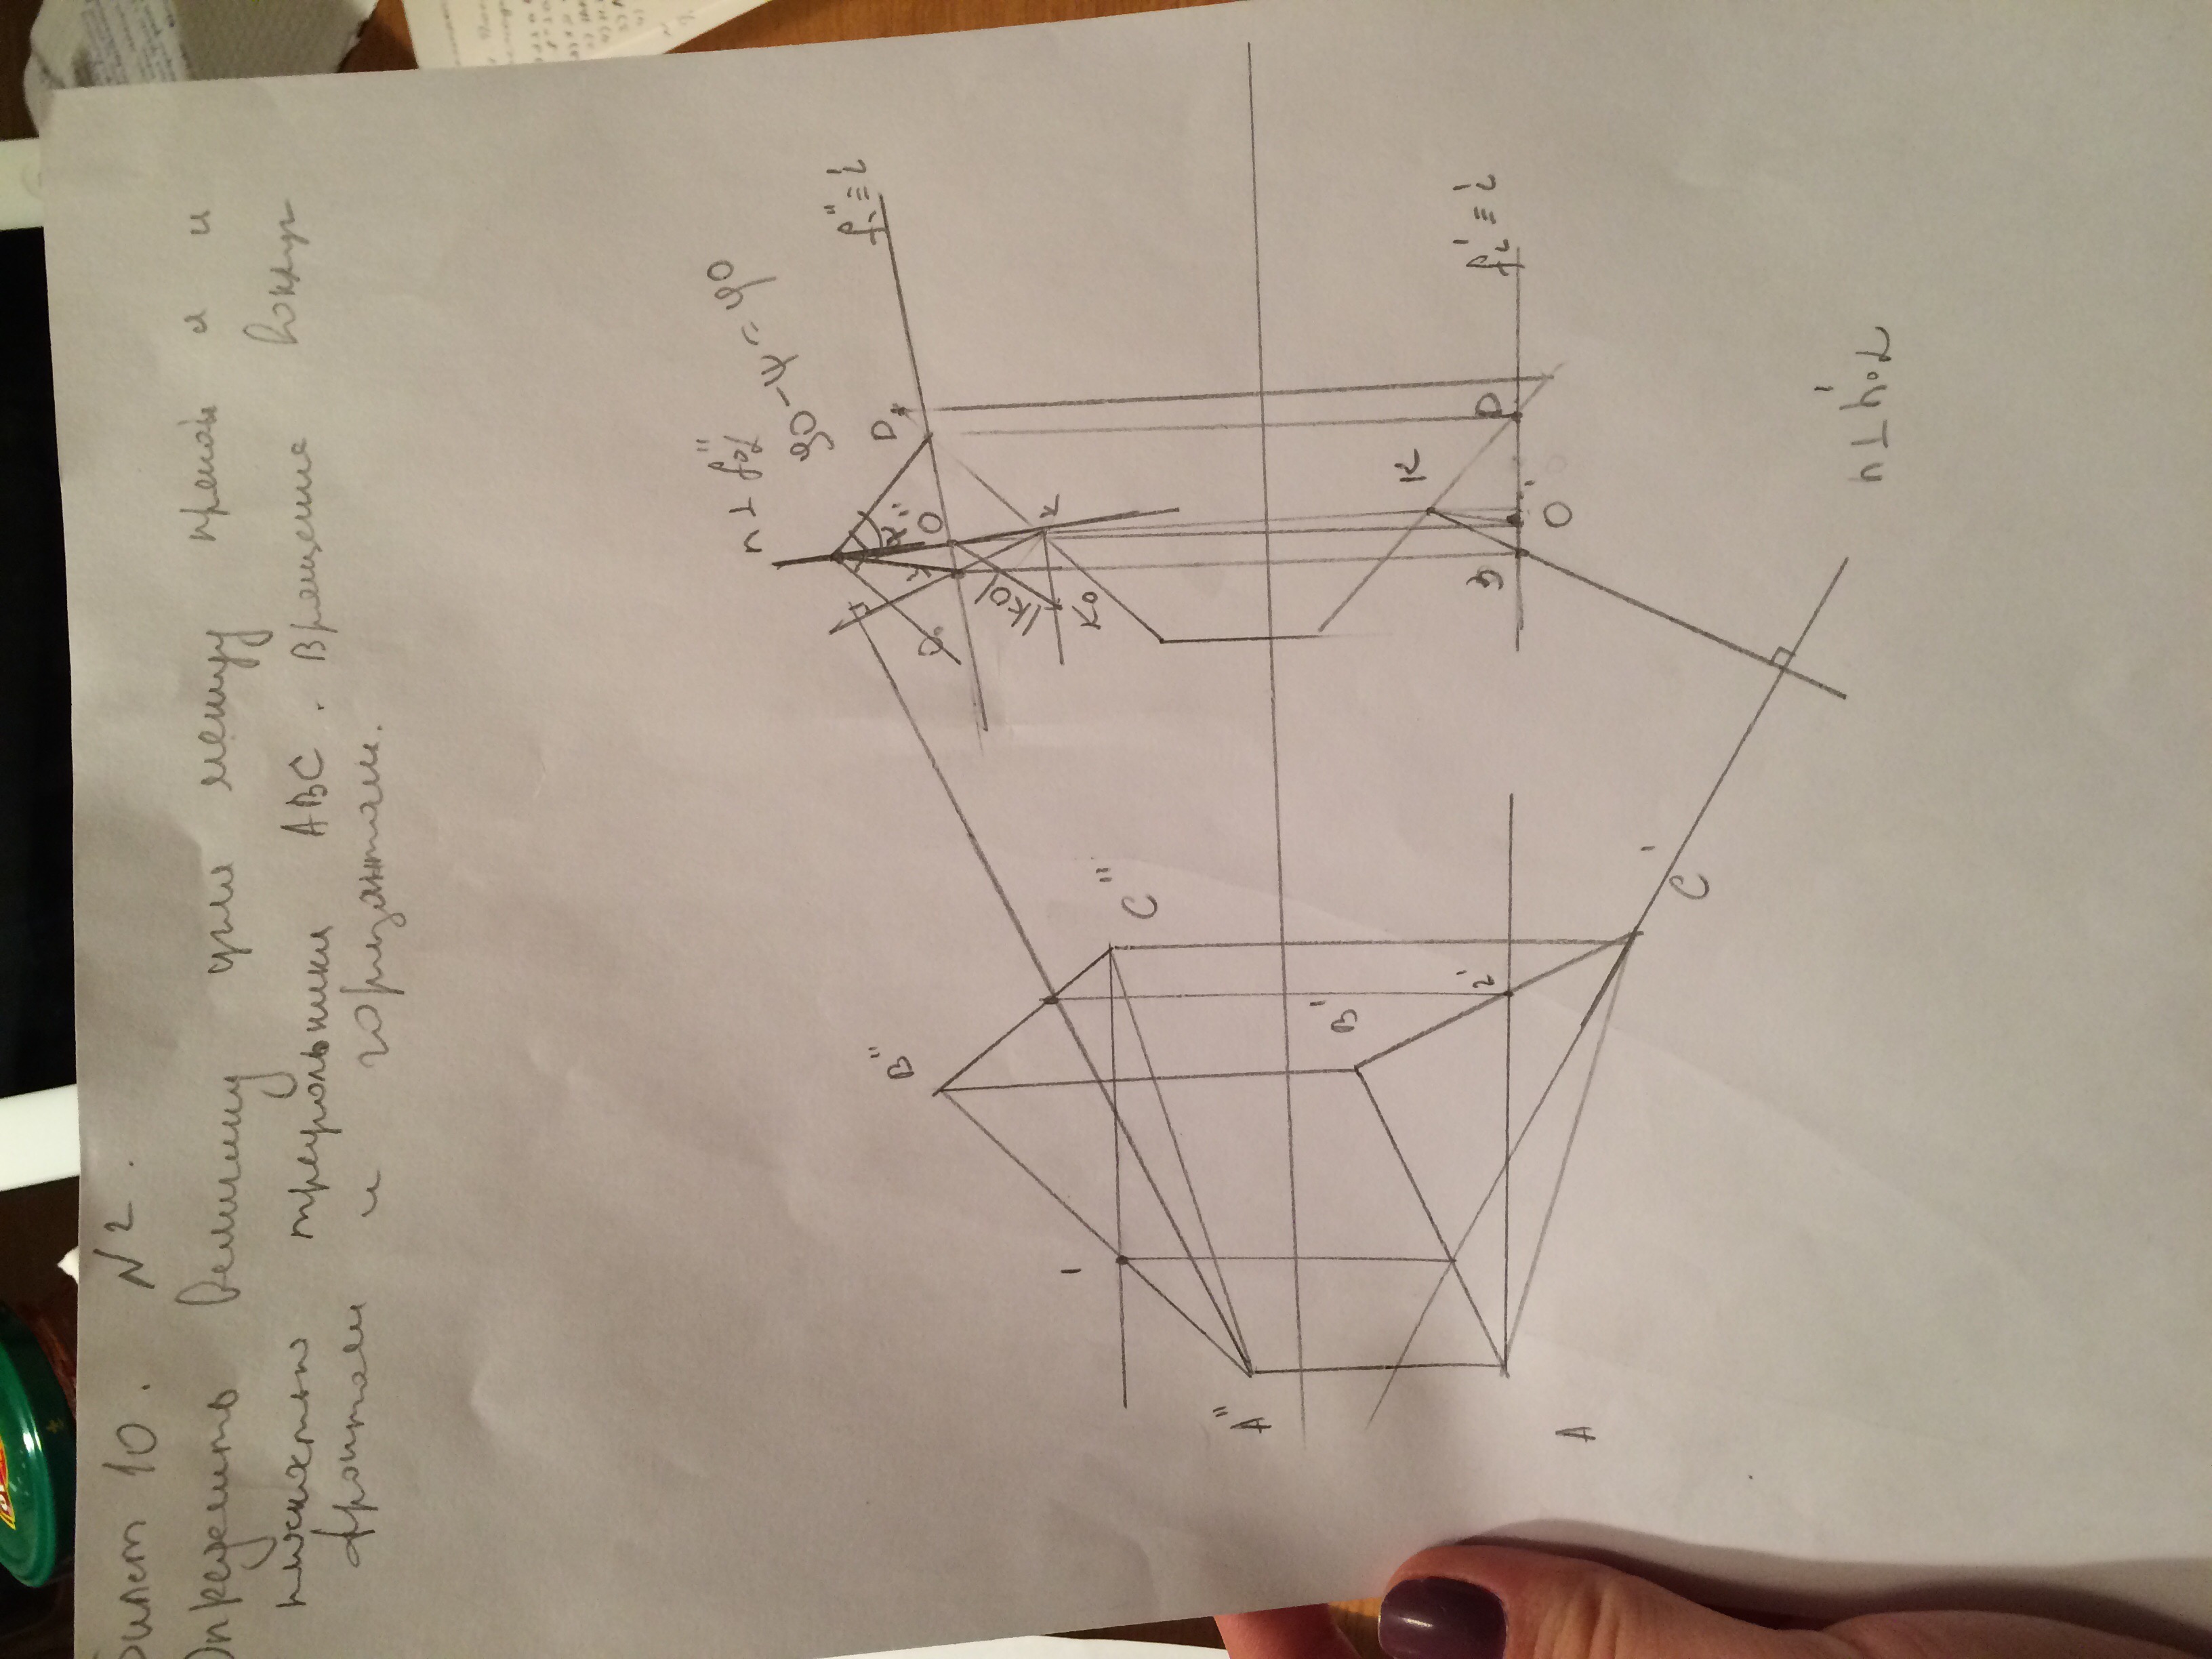 Билет 10. №2.
Определить величину угла между прямой и
плоскостью треугольника ABC. Вращение вокруг
фронтали и горизонтали.
n ⊥ f''₀α
90-ψ=φ0
f'' ≡ i
B''
D
O''
|KO|
K
K₀
1
C''
A''
B'
K
2'
3
D
f' ≡ i
O'
A
C'
n⊥h'₀α